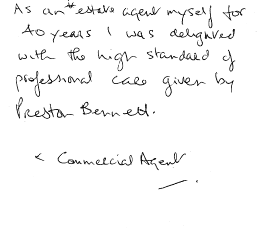 As an * estate agent myself for
40 years I was delighted
with the high standard of
professional care given by
Preston Bennett.
* Commercial Agent